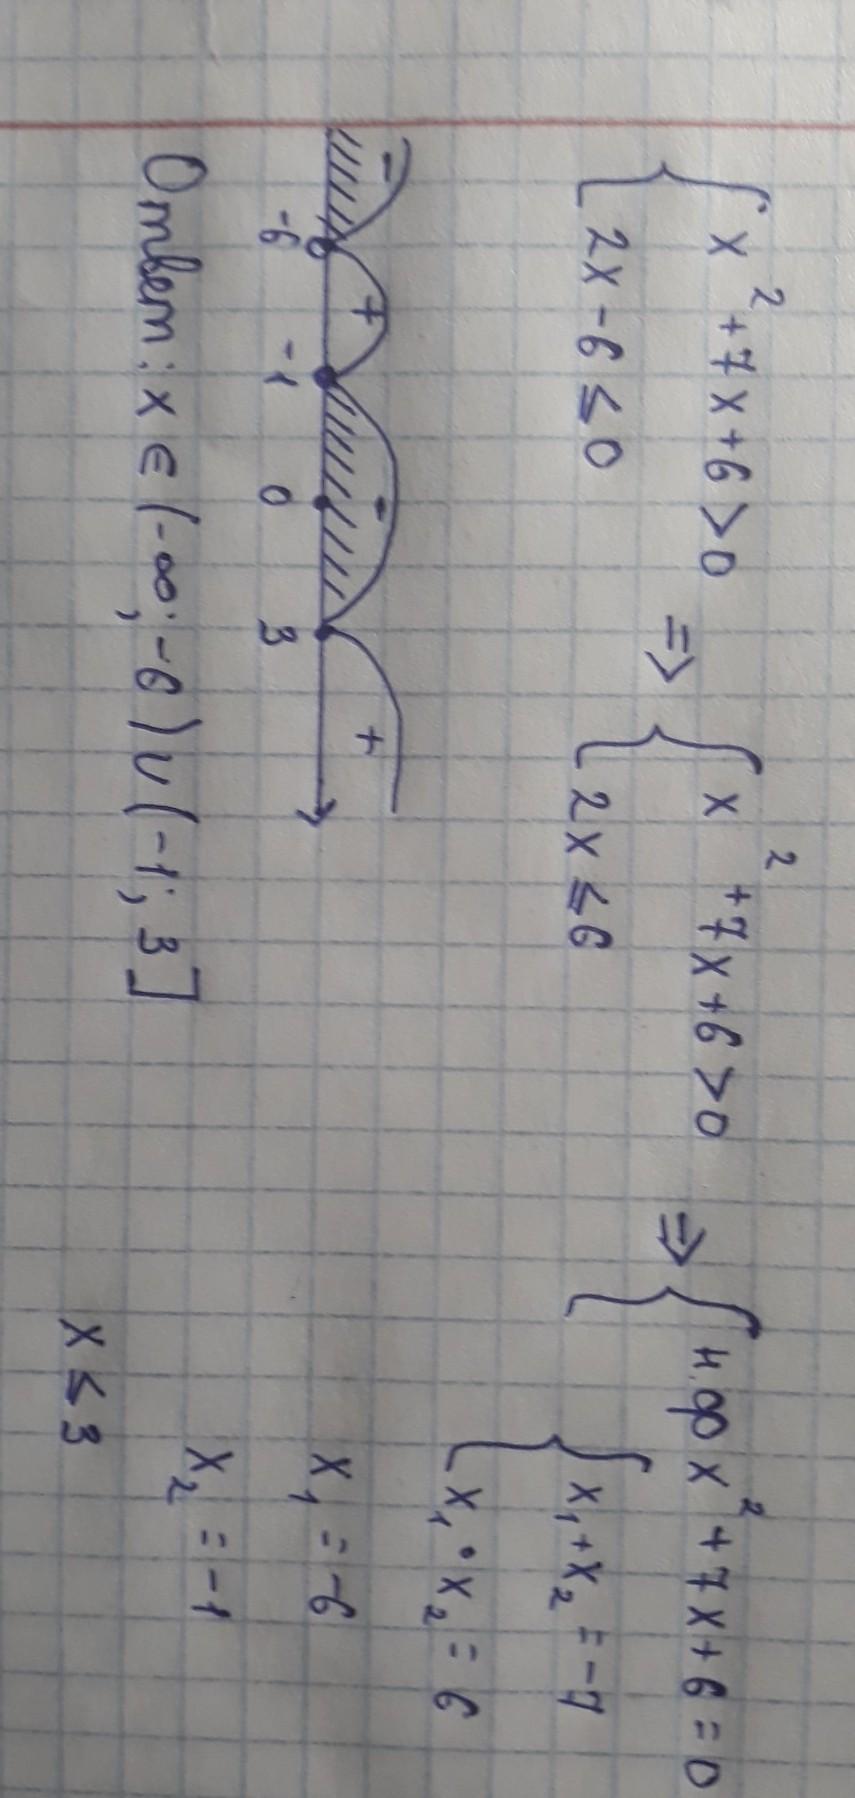 { x² + 7x + 6 > 0 => { x² + 7x + 6 > 0 => { н.ф x² + 7x + 6 = 0
2x - 6 ≤ 0 2x ≤ 6
{ x₁ + x₂ = -7
x₁ • x₂ = 6
x₁ = -6
x₂ = -1
x ≤ 3
- + - +
-6 -1 0 3
Ответ: x ∈ (-∞; -6) ∪ (-1; 3]